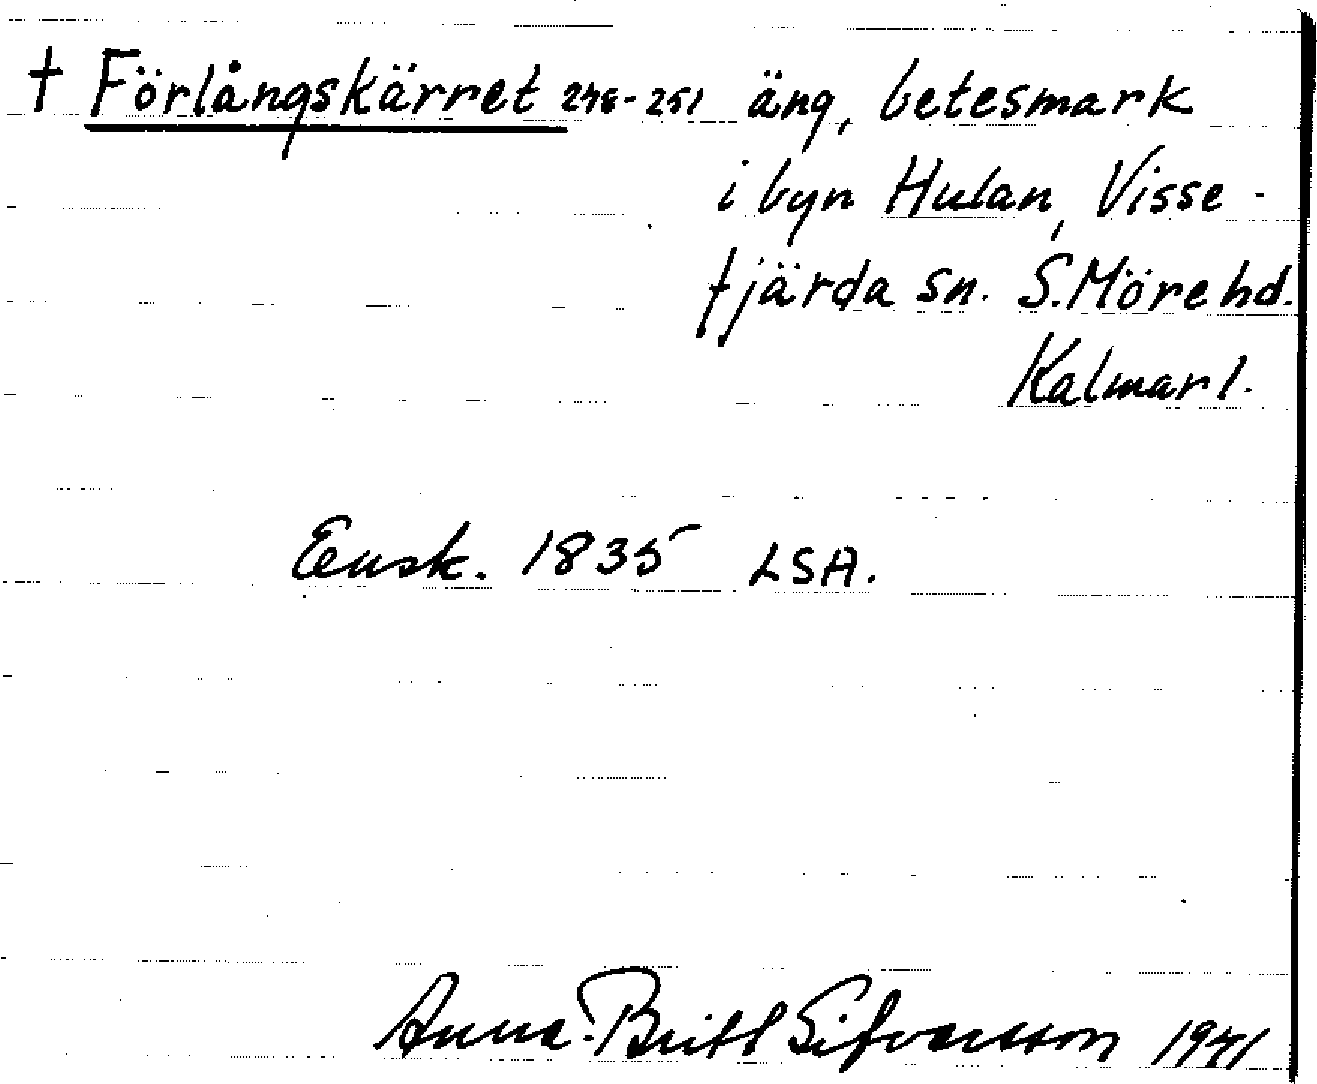 † Förlångskärret 248-251 äng, betesmark
i byn Hulan, Visse-
fjärda sn. S. Möre hd.
Kalmar l.
Ensk. 1835 LSA.
Anna-Britt Sifvertsson 1941